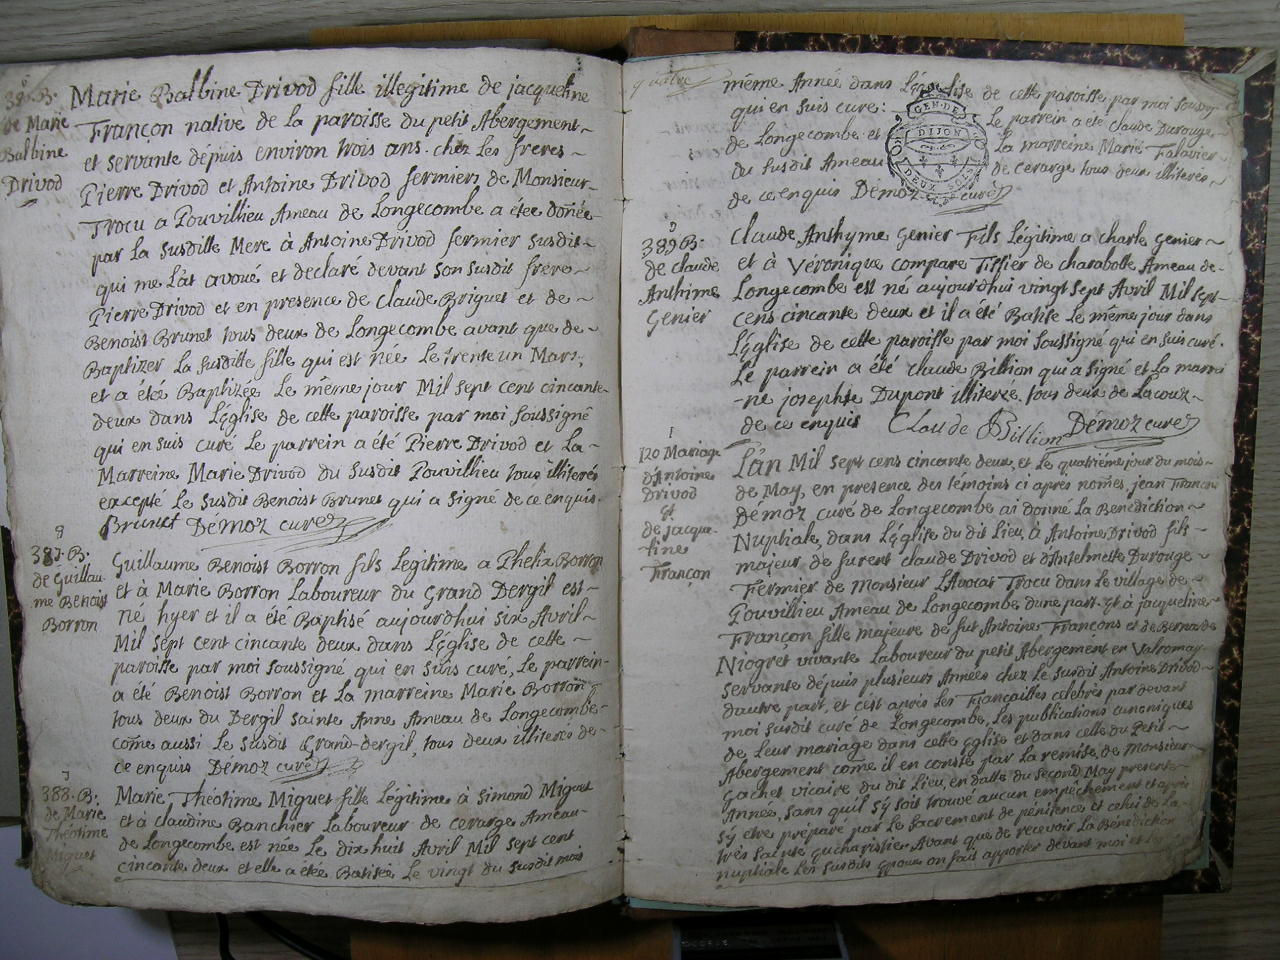 386. B.
de Marie
Balbine
Drivod
Marie Balbine Drivod fille illegitime de jacqueline
Françon native de la paroisse du petit Abergement
et servante dépuis environ trois ans chez Les freres
Pierre Drivod et Antoine Drivod fermiers de Monsieur
Trocu a Pouvillieu Ameau de Longecombe a étée donée
par la susditte Mere à Antoine Drivod fermier susdit
qui me L'at avoué et declaré devant son susdit frere
Pierre Drivod et en presence de Claude Briguet et de
Benoist Brunet tous deux de Longecombe avant que de
Baptizer La susditte fille qui est née Le trente un Mars
et a été Baptizée Le même jour Mil sept cent cincante
deux dans L'église de cette paroisse par moi soussigné
qui en suis curé Le parrein a été Pierre Drivod et La
Marreine Marie Drivod du susdit Pouvillieu tous illiterés
excepté Le susdit Benoist Brunet qui a signé de ce enquis
Brunet Démoz curé
387. B.
de Guillau-
me Benoist
Borron
Guillaume Benoist Borron fils Légitime a Phelix Borron
et à Marie Borron Laboureur du Grand Dergil est
né hyer et il a été Baptisé aujourdhui six Avril
Mil sept cent cincante deux dans L'église de cette
paroisse par moi soussigné qui en suis curé, Le parrein
a été Benoist Borron et La marreine Marie Borron
tous deux du Dergil sainte Anne Ameau de Longecombe
come aussi Le susdit Grand-dergil, tous deux illiterés de
ce enquis Démoz curé
388. B.
de Marie
Théotime
Miguet
Marie Théotime Miguet fille Légitime à Simond Miguet
et à claudine Banchier Laboureur de cerarge Ameau
de Longecombe est née Le dix huit Avril Mil sept cent
cincante deux et elle a étée Batisée Le vingt du susdit mois
quatre
même Année dans L'église de cette paroisse, par moi soussigné
qui en suis curé: Le parrein a été claude Durouge
de Longecombe et La marreine Marie Falavier
du susdit Ameau de cerarge tous deux illiterés
de ce enquis Démoz curé
GEN. DE DIJON
DEUX SOLS
389 B.
de Claude
Anthime
Genier
Claude Anthyme Genier Fils Légitime a charle Genier
et à Véronique compare Tissier de charabotte Ameau de
Longecombe est né aujourdhui vingt sept Avril Mil sept
cens cincante deux et il a été Batisé Le même jour dans
L'église de cette paroisse par moi soussigné qui en suis curé.
Le parrein a été claude Billion qui a signé et La marrei
-ne josephte Dupont illiterée, tous deux de Lacouz
de ce enquis Claude Billion Démoz curé
120 Mariage
d'Antoine
Drivod
et
de jacque-
line
Françon
L'an Mil sept cens cincante deux, et Le quatrième jour du mois
de May, en presence des témoins ci apres només, jean François
Démoz curé de Longecombe ai donné La Benédiction
Nuptiale, dans L'église du dit Lieu, à Antoine Drivod fils
majeur de furent claude Drivod et d'Anthelmette Durouge
Fermier de Monsieur L'Avocat Trocu dans Le village de
Pouvillieu Ameau de Longecombe, d'une part. et à jacqueline
Françon fille majeure de fut Antoine Françons et de Bernarde
Niogret vivante Laboureur du petit Abergement en Valromay
servante dépuis plusieurs Années chez Le susdit Antoine Drivod
d'autre part, et c'est après Les Fiançailles celebrés par devant
moi susdit curé de Longecombe, Les publications canoniques
de Leur mariage dans cette Eglise et dans celle du Petit
Abergement come il en conste par La remise de Monsieur
Gachet vicaire du dit Lieu, en datte du second May presente
Année, sans qu'il s'y soit trouvé aucun empêchement et après
s'y etre préparé par Le sacrement de pénitence et celui de La
très sainte eucharistie Avant que de recevoir La Bénédiction
nuptiale Les susdits epoux on fait apporter devant moi et